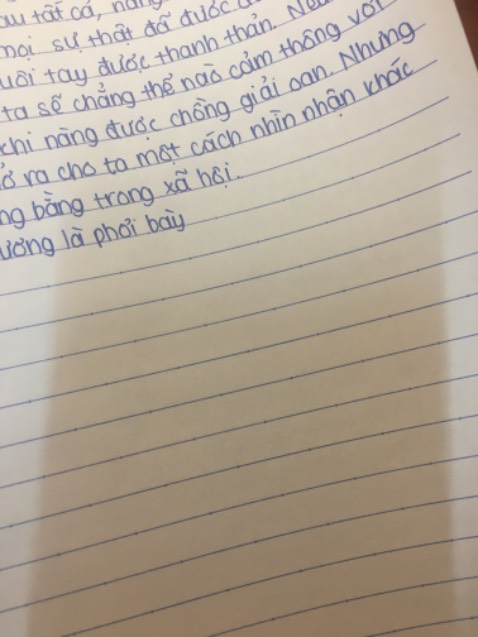 tất cả, nàng
mọi sự thật đã được
tay được thanh thản.
ta sẽ chẳng thể nào cảm thông với
chi nàng được chồng giải oan. Nhưng
ra cho ta một cách nhìn nhận khác
bằng trong xã hội.
là phơi bày